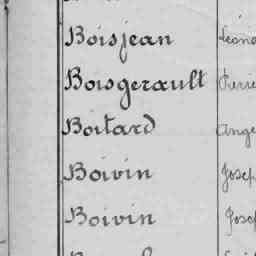 Boisjean
Boisgerault
Boitard Ange
Boivin Josep
Boivin Josep